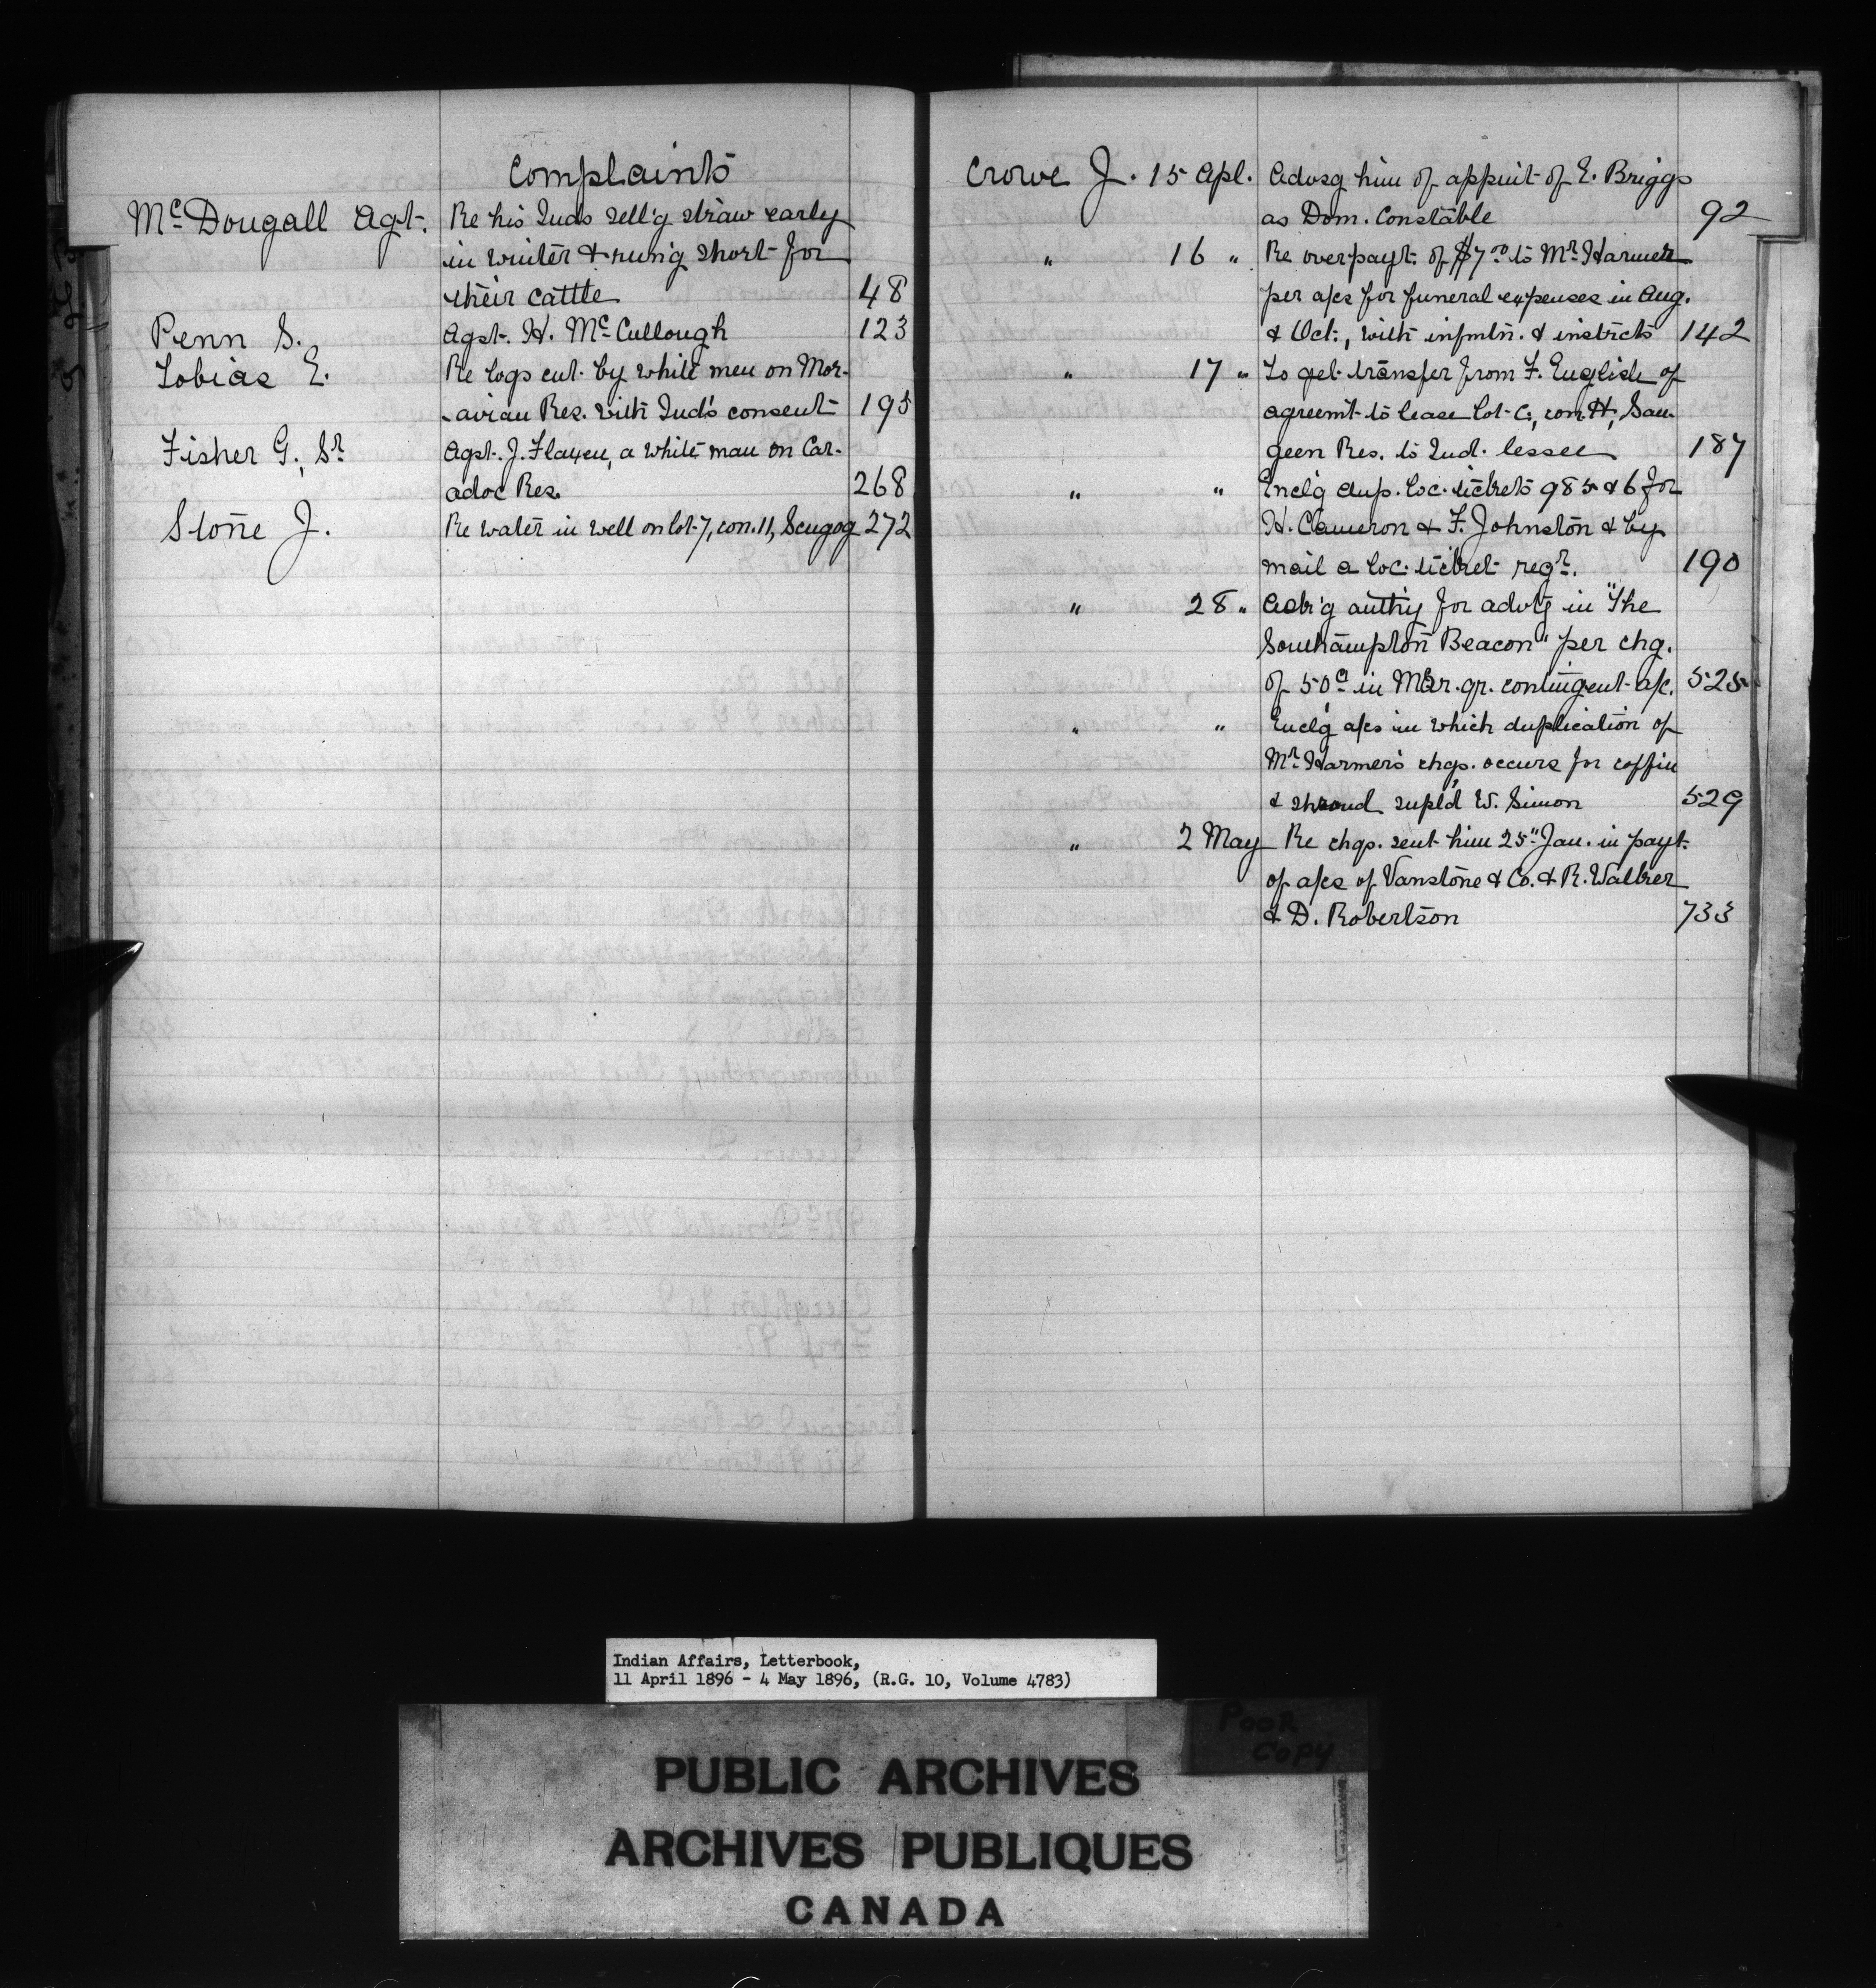 Complaints
McDougall Agt. Re his Inds sell'g straw early
in winter & run'g short for
their cattle 48
Penn S. Agst. H. McCullough 123
Tobias E. Re logs cut by white men on Mor-
avian Res. with Ind's consent 195
Fisher G., Sr. Agst. J. Flayen, a white man on Car-
adoc Res. 268
Stone J. Re water in well on lot 7, con. 11, Scugog 272
Crowe J. 15 Apl. Advsg him of appmt of E. Briggs
as Dom. Constable 92
" 16 " Re overpayt. of $7.00 to Mr. Harmer
per a/cs for funeral expenses in Aug.
& Oct., with infmtn. & instrcts 142
" 17 " To get transfer from F. English of
agreemt to lease lot C, con. H, Sau-
geen Res. to Ind. lessee 187
" " Enclg dup. loc. tickets 985 & 6 for
H. Cameron & F. Johnston & by
mail a loc. ticket regr. 190
" 28 " Ask'g auth'y for advtg in "The
Southampton Beacon" per chg.
of 50c in Mar. qr. contingent a/c. 525
" " Enclg a/cs in which duplication of
Mr. Harmer's chgs. occurs for coffin
& shroud supl'd W. Simon 529
" 2 May Re chqs. sent him 25" Jan. in payt.
of a/cs of Vanstone & Co. & R. Walker
& D. Robertson 733
Indian Affairs, Letterbook,
11 April 1896 - 4 May 1896, (R.G. 10, Volume 4783)
POOR
COPY
PUBLIC ARCHIVES
ARCHIVES PUBLIQUES
CANADA